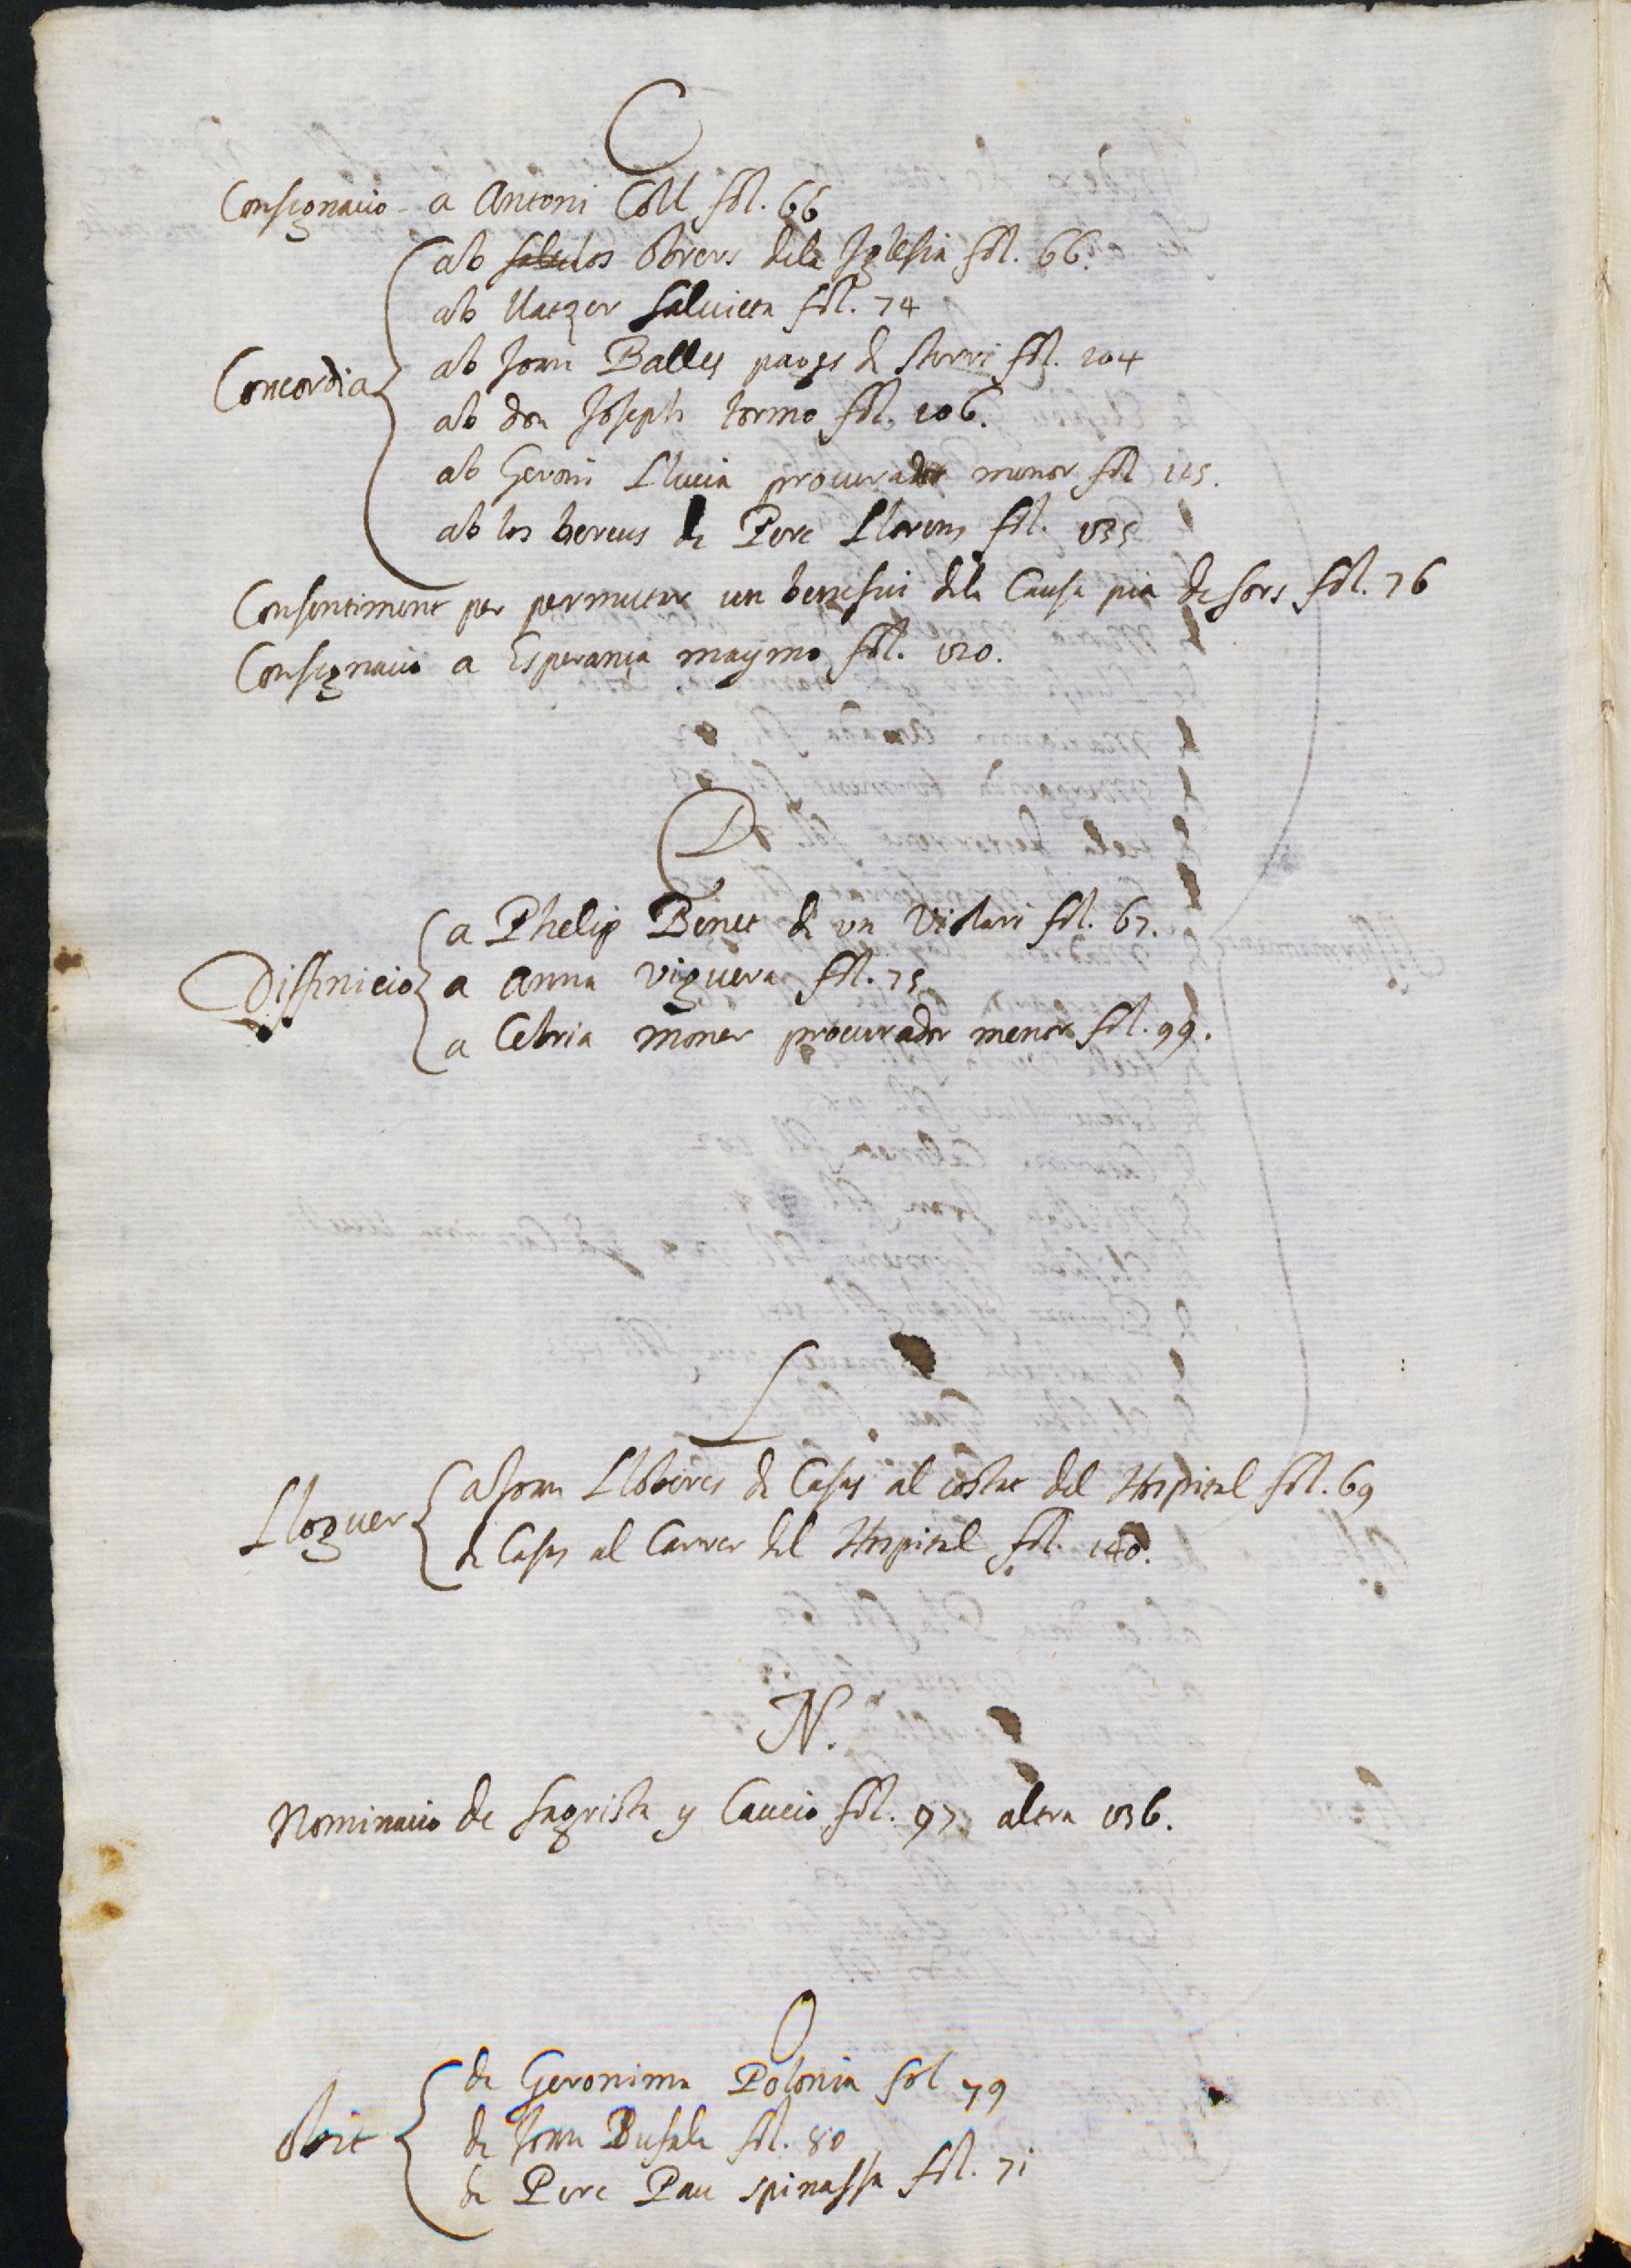 C
Consignacio - a Antoni Coll fol. 66
ab los Obrers dela Iglesia fol. 66.
ab Salvieta fol. 74
Concordia ab Joan Balles pages de fol. 104
ab don Joseph tormo fol. 106.
ab Geroni Llucia procurador menor fol 115.
ab los hereus de Pere Llorens fol. 135
Consentiment per permutar un benefici dela Causa pia de fors fol. 76
Consignacio a Esperança maymo fol. 120.
D
a Phelip Benet de un Violari fol. 67.
Diffinicio a Anna viguera fol. 75
a Cebria moner procurador menor fol. 99.
L
Lloguer a Joan Lloberes de Casas al costat del Hospital fol. 69
de Casas al Carrer del Hospital fol. 140.
N.
Nominacio de Sagrista y Caucio fol. 97 altra 136.
O
de Geronima Polonia fol 79
Obit de Joan Busale fol. 80
de Pere Pau spinassa fol. 71